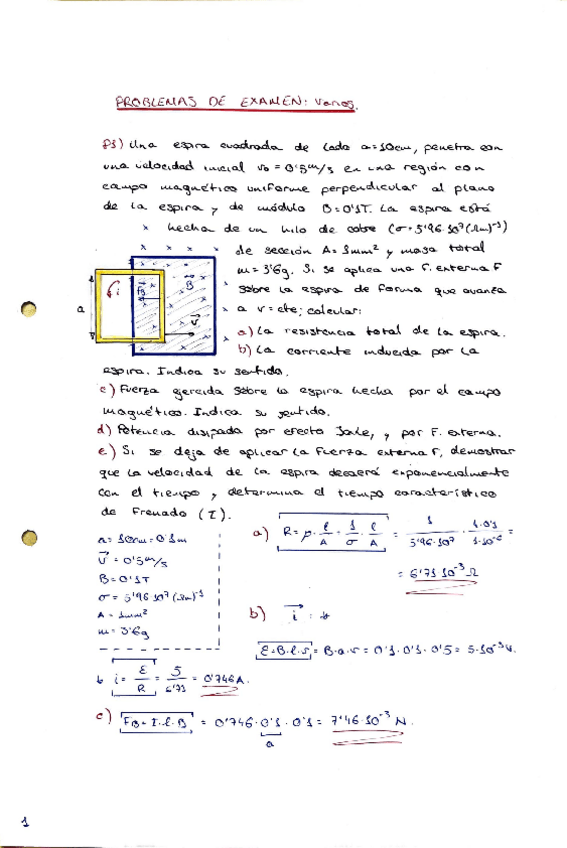 PROBLEMAS DE EXAMEN: Varios.
P1) Una espira cuadrada de lado a=10cm, penetra con
una velocidad inicial v₀=0'5m/s en una región con
campo magnético uniforme perpendicular al plano
de la espira y de módulo B=0'1T. La espira está
hecha de un hilo de cobre (σ=5'96·10⁷(Ωm)⁻¹)
de sección A=1mm² y masa total
m=3'6g. Si se aplica una F. externa F
sobre la espira de forma que avanza
a v=cte; calcular:
a) La resistencia total de la espira.
b) La corriente inducida por la
espira. Indica su sentido.
c) Fuerza ejercida sobre la espira hecha por el campo
magnético. Indica su sentido.
d) Potencia disipada por efecto Joule, y por F. externa.
e) Si se deja de aplicar la fuerza externa F, demostrar
que la velocidad de la espira decaerá exponencialmente
con el tiempo y determina el tiempo característico
de frenado (τ).
a
i
F_B
B
v
a=10cm=0'1m
v=0'5m/s
B=0'1T
σ=5'96·10⁷(Ωm)⁻¹
A=1mm²
m=3'6g
a) R=ρ·ℓ/A=1/σ·ℓ/A = 1/5'96·10⁷ · 4·0'1/1·10⁻⁶ =
= 6'71·10⁻³Ω
b) i :
ε=B·l·v = B·a·v = 0'1·0'1·0'5 = 5·10⁻³V.
i=ε/R=5/6'71=0'746A.
c) F_B=I·l·B = 0'746·0'1·0'1 = 7'46·10⁻³N.
a
1